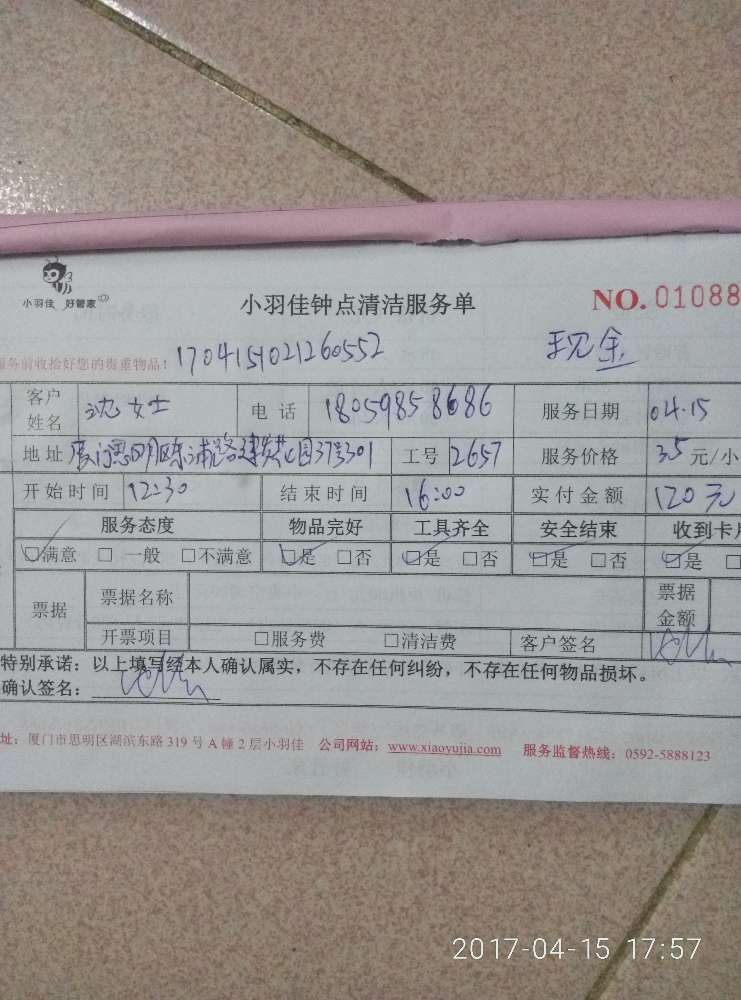 小羽佳 好管家
小羽佳钟点清洁服务单
NO. 01088
服务前收拾好您的贵重物品！ 1704151021260552 现金
客户姓名 沈女士 电话 18059858686 服务日期 04.15
地址 厦门思明区东浦路 园37号301 工号 2657 服务价格 35 元/小
开始时间 12:30 结束时间 16:00 实付金额 120元
服务态度 物品完好 工具齐全 安全结束 收到卡
□满意 □一般 □不满意 □是 □否 □是 □否 □是 □否 □是 □
票据 票据名称 票据金额
开票项目 □服务费 □清洁费 客户签名
特别承诺：以上填写经本人确认属实，不存在任何纠纷，不存在任何物品损坏。
确认签名：
址：厦门市思明区湖滨东路 319 号 A 幢 2 层小羽佳 公司网站：www.xiaoyujia.com 服务监督热线：0592-5888123
2017-04-15 17:57